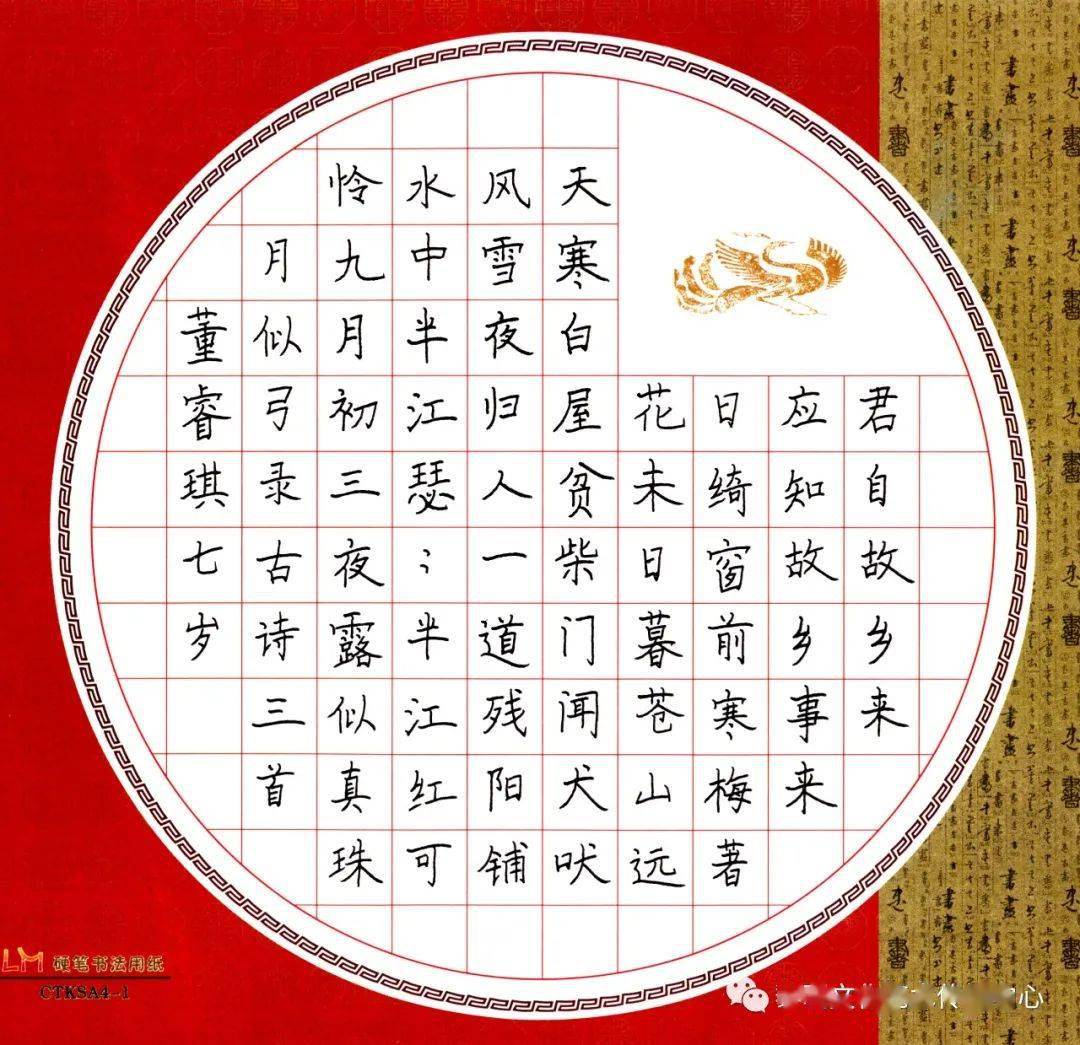 君自故乡来
应知故乡事来
日绮窗前寒梅著
花未日暮苍山远
天寒白屋贫柴门闻犬吠
风雪夜归人一道残阳铺
水中半江瑟;半江红可
怜九月初三夜露似真珠
月似弓录古诗三首
董睿琪七岁
LM 硬笔书法用纸
CTKSA4-1